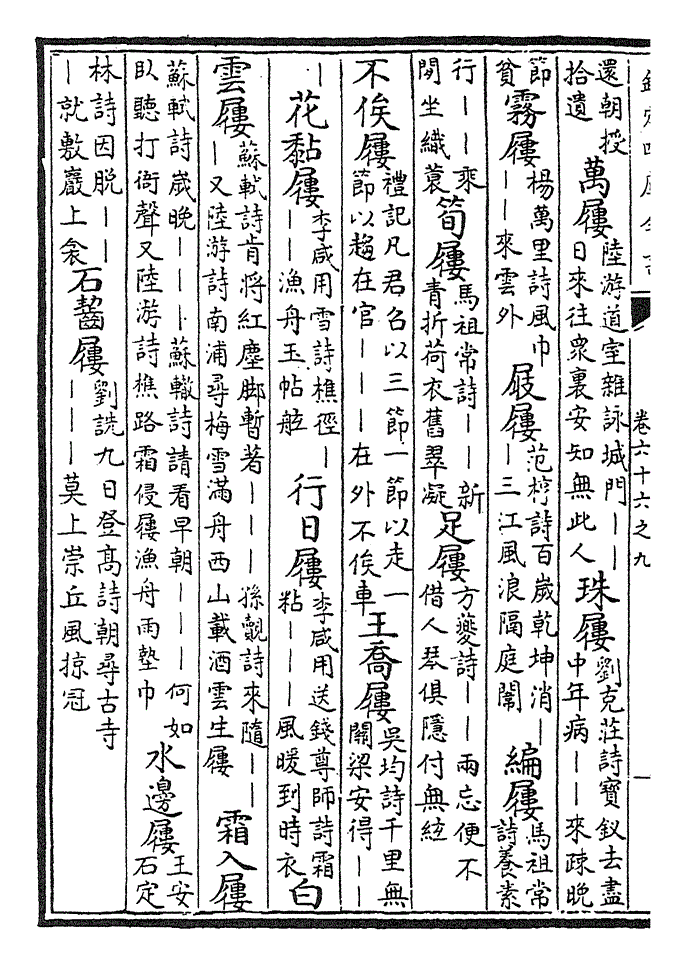 欽定四庫全書　卷六十六之九
還朝授拾遺　萬屨　陸游道室雜詠城門｜｜日來往衆裏安知無此人　珠屨　劉克莊詩寶釵去盡中年病｜｜來疎晚
節貧　霧屨　楊萬里詩風巾｜｜來雲外　屐屨　范梈詩百歲乾坤消｜｜三江風浪隔庭闈　編屨　馬祖常詩養素
行｜｜乘閒坐織蓑　筍屨　馬祖常詩｜｜新青折荷衣舊翠凝　足屨　方夔詩｜｜兩忘便不借人琴俱隱付無絃
不俟屨　禮記凡君召以三節一節以走一節以趨在官｜｜｜在外不俟車　王喬屨　吳均詩千里無關梁安得｜｜
｜　花黏屨　李咸用雪詩樵徑｜｜｜漁舟玉帖舷　行日屨　李咸用送錢尊師詩霜粘｜｜｜風暖到時衣　白
雲屨　蘇軾詩肯將紅塵脚暫著｜｜｜孫覿詩來隨｜｜｜又陸游詩南浦尋梅雪滿舟西山載酒雲生屨　霜入屨
蘇軾詩歲晚｜｜｜蘇轍詩請看早朝｜｜｜何如臥聽打衙聲又陸游詩樵路霜侵屨漁舟雨墊巾　水邊屨　王安石定
林詩因脫｜｜｜就敷巖上衾　石齧屨　劉詵九日登高詩朝尋古寺｜｜｜莫上崇丘風掠冠